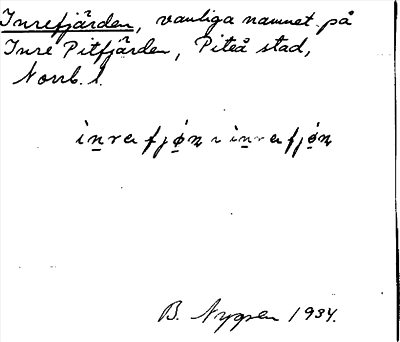 Inrefjärden, vanliga namnet på
Inre Pitfjärden, Piteå stad,
Norrb. l.
B. Nygren 1934.